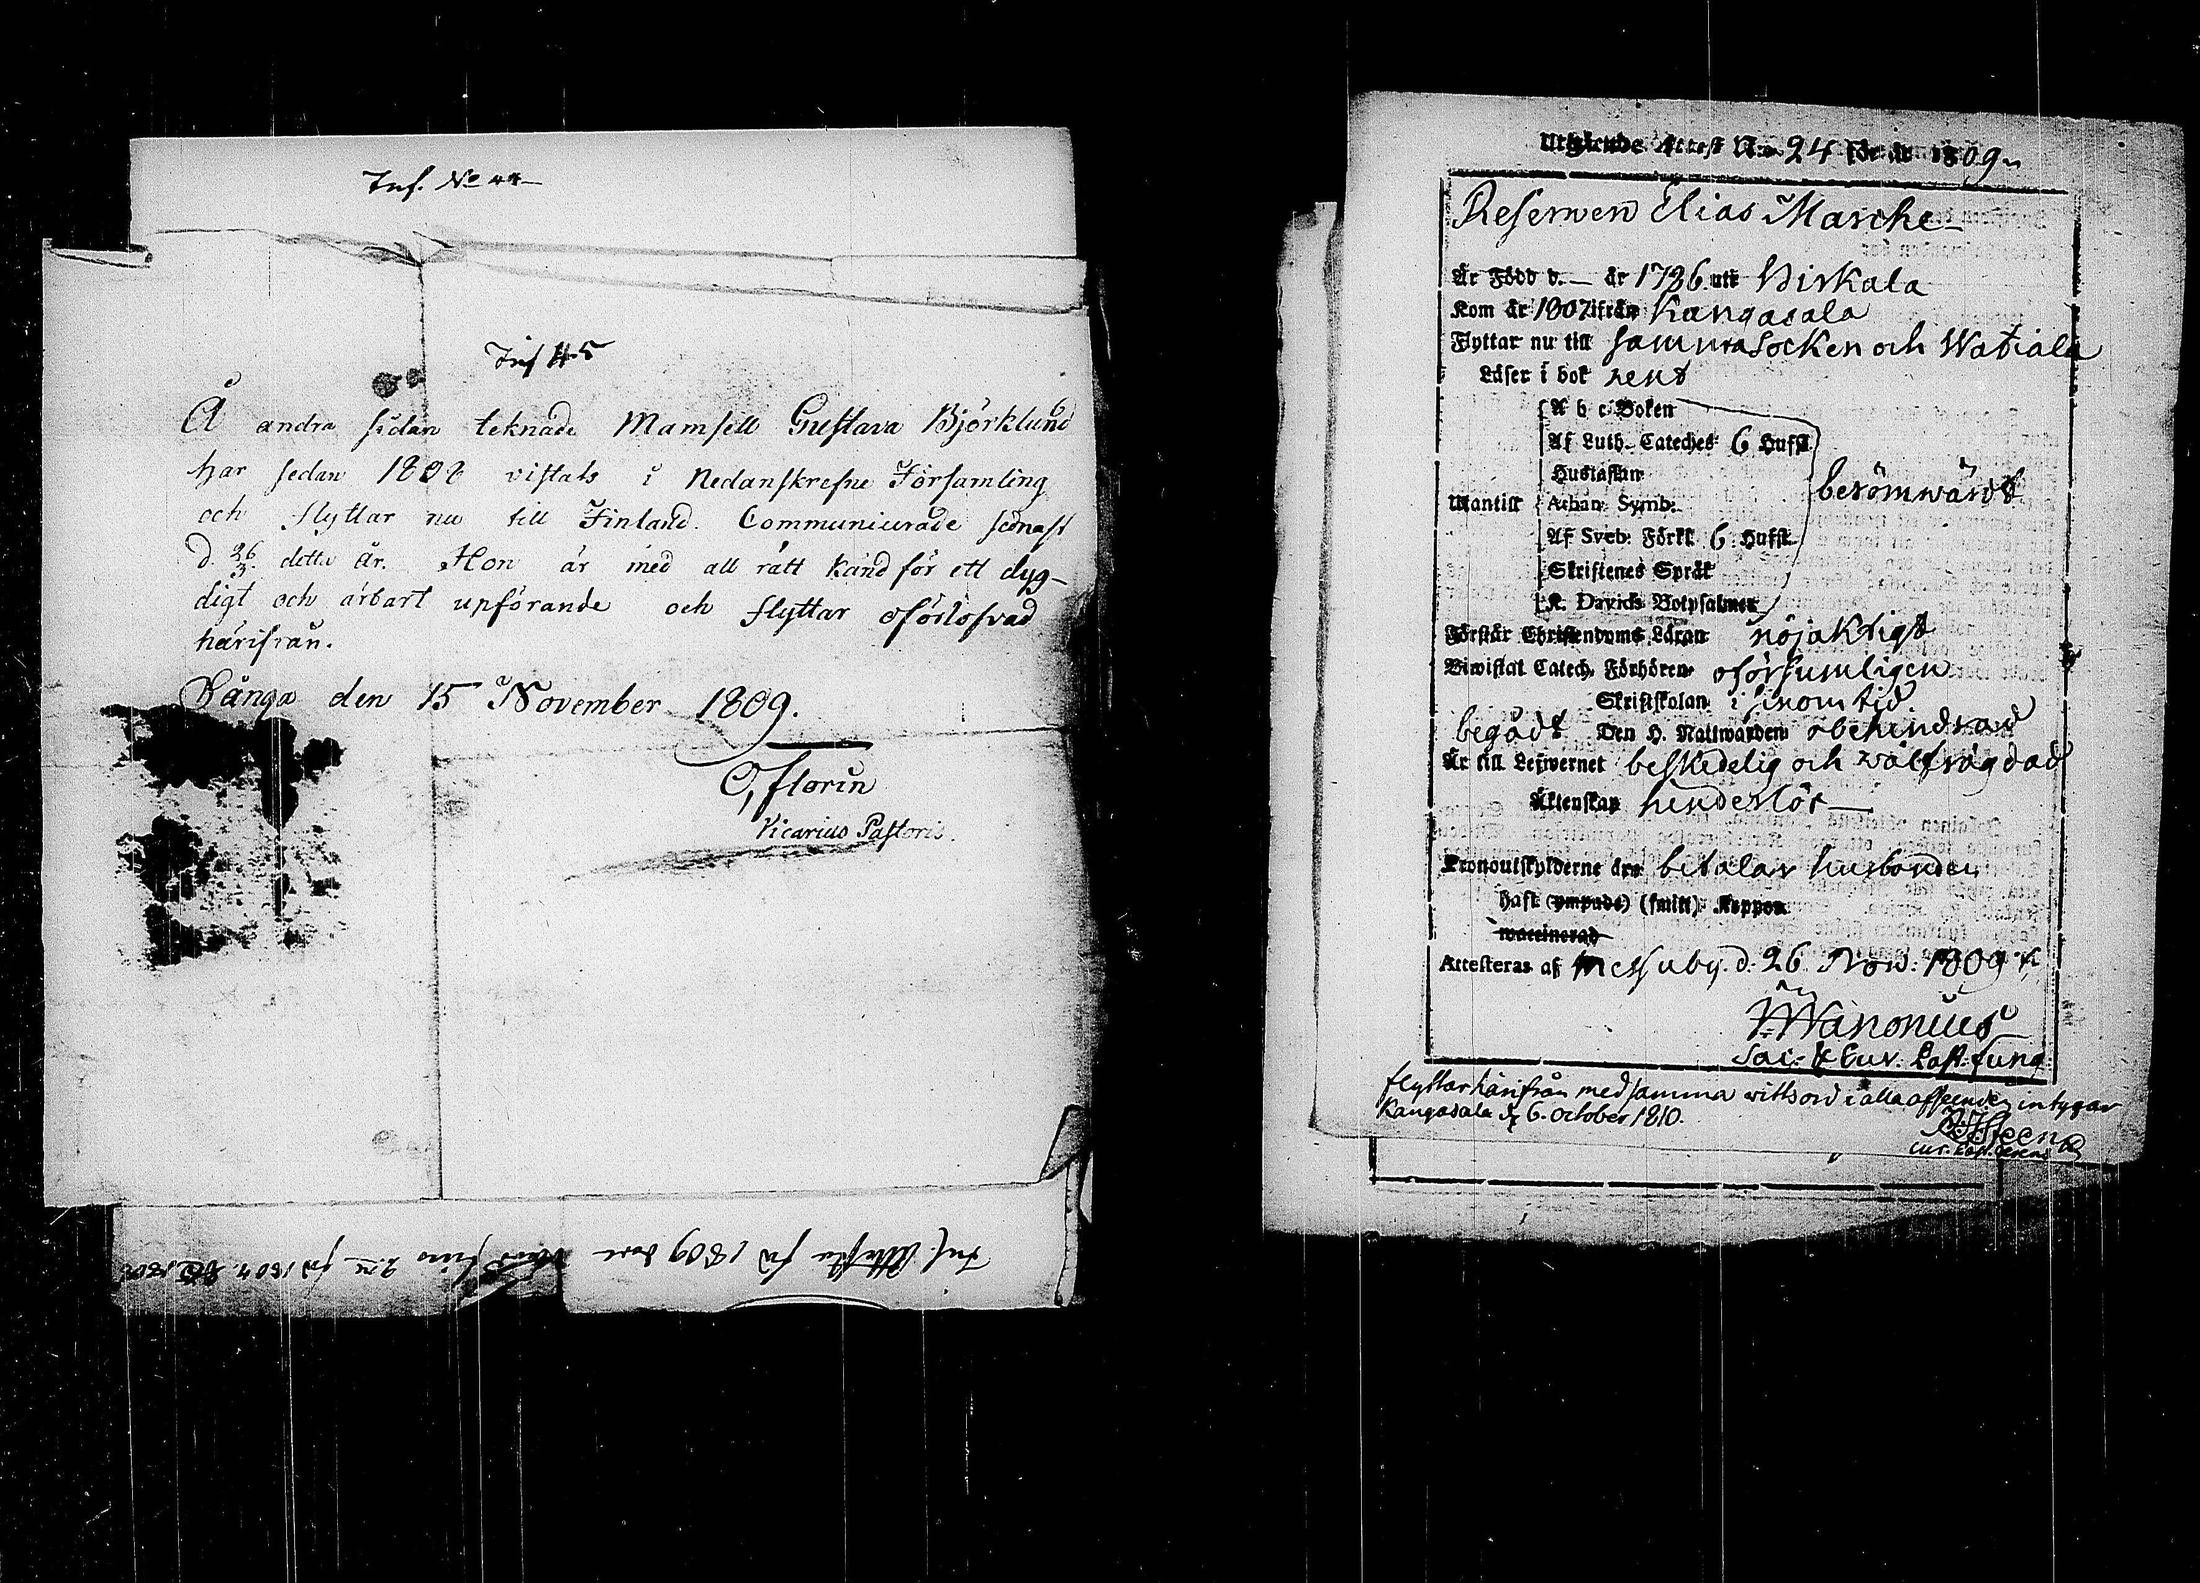 Inf. No 44
Inf 45
Å andra sidan teknade Mamsell Gustava Björklund
har sedan 1808 vistats i Nedanskrefne Församling
och flyttar nu till Finland. Communicerade sednast
d. 26/3. detta År. Hon är med all rätt känd för ett dyg-
digt och ärbart upförande och flyttar oförlofvad
härifrån.
Sånga den 15 November 1809.
O, Florin
Vicarius Pastoris.
Inf. Attester för 1809
Utgående Attest No 24 för år 1809
Reserven Elias Marcke
Är Född d. — år 1786 uti Birkala
Kom år 1807 ifrån Kangasala
Flyttar nu till samma Socken och Watiala
Läser i bok rent
A b c Boken
Af Luth. Cateches 6 Hufst.
Hustaflan
Utantill Athan. Symb.
berömwärdt
Af Sveb. Förkl. 6 Hufst.
Skriftenes Språk
K. Davids Botpsalmer
Förstår Christendoms Läran nöjaktigt
Biwistat Catech. Förhören oförsumligen
Skriftskolan i sinom tid
begådt Den H. Nattwarden obehindrad
Är till Lefwernet beskedelig och wälfrägdad
Äktenskap hinderlös
Kronoutskylderne betalar husbonden
Haft (ympade) (smitt) Koppor
waccinerad
Attesteras af Messuby. d. 26. Nov. 1809
Wanonius
Sac. & Cur. Past. fung.
flyttar härifrån med samma vittsord i alla afseenden intygar
Kangasala d. 6. october 1810.